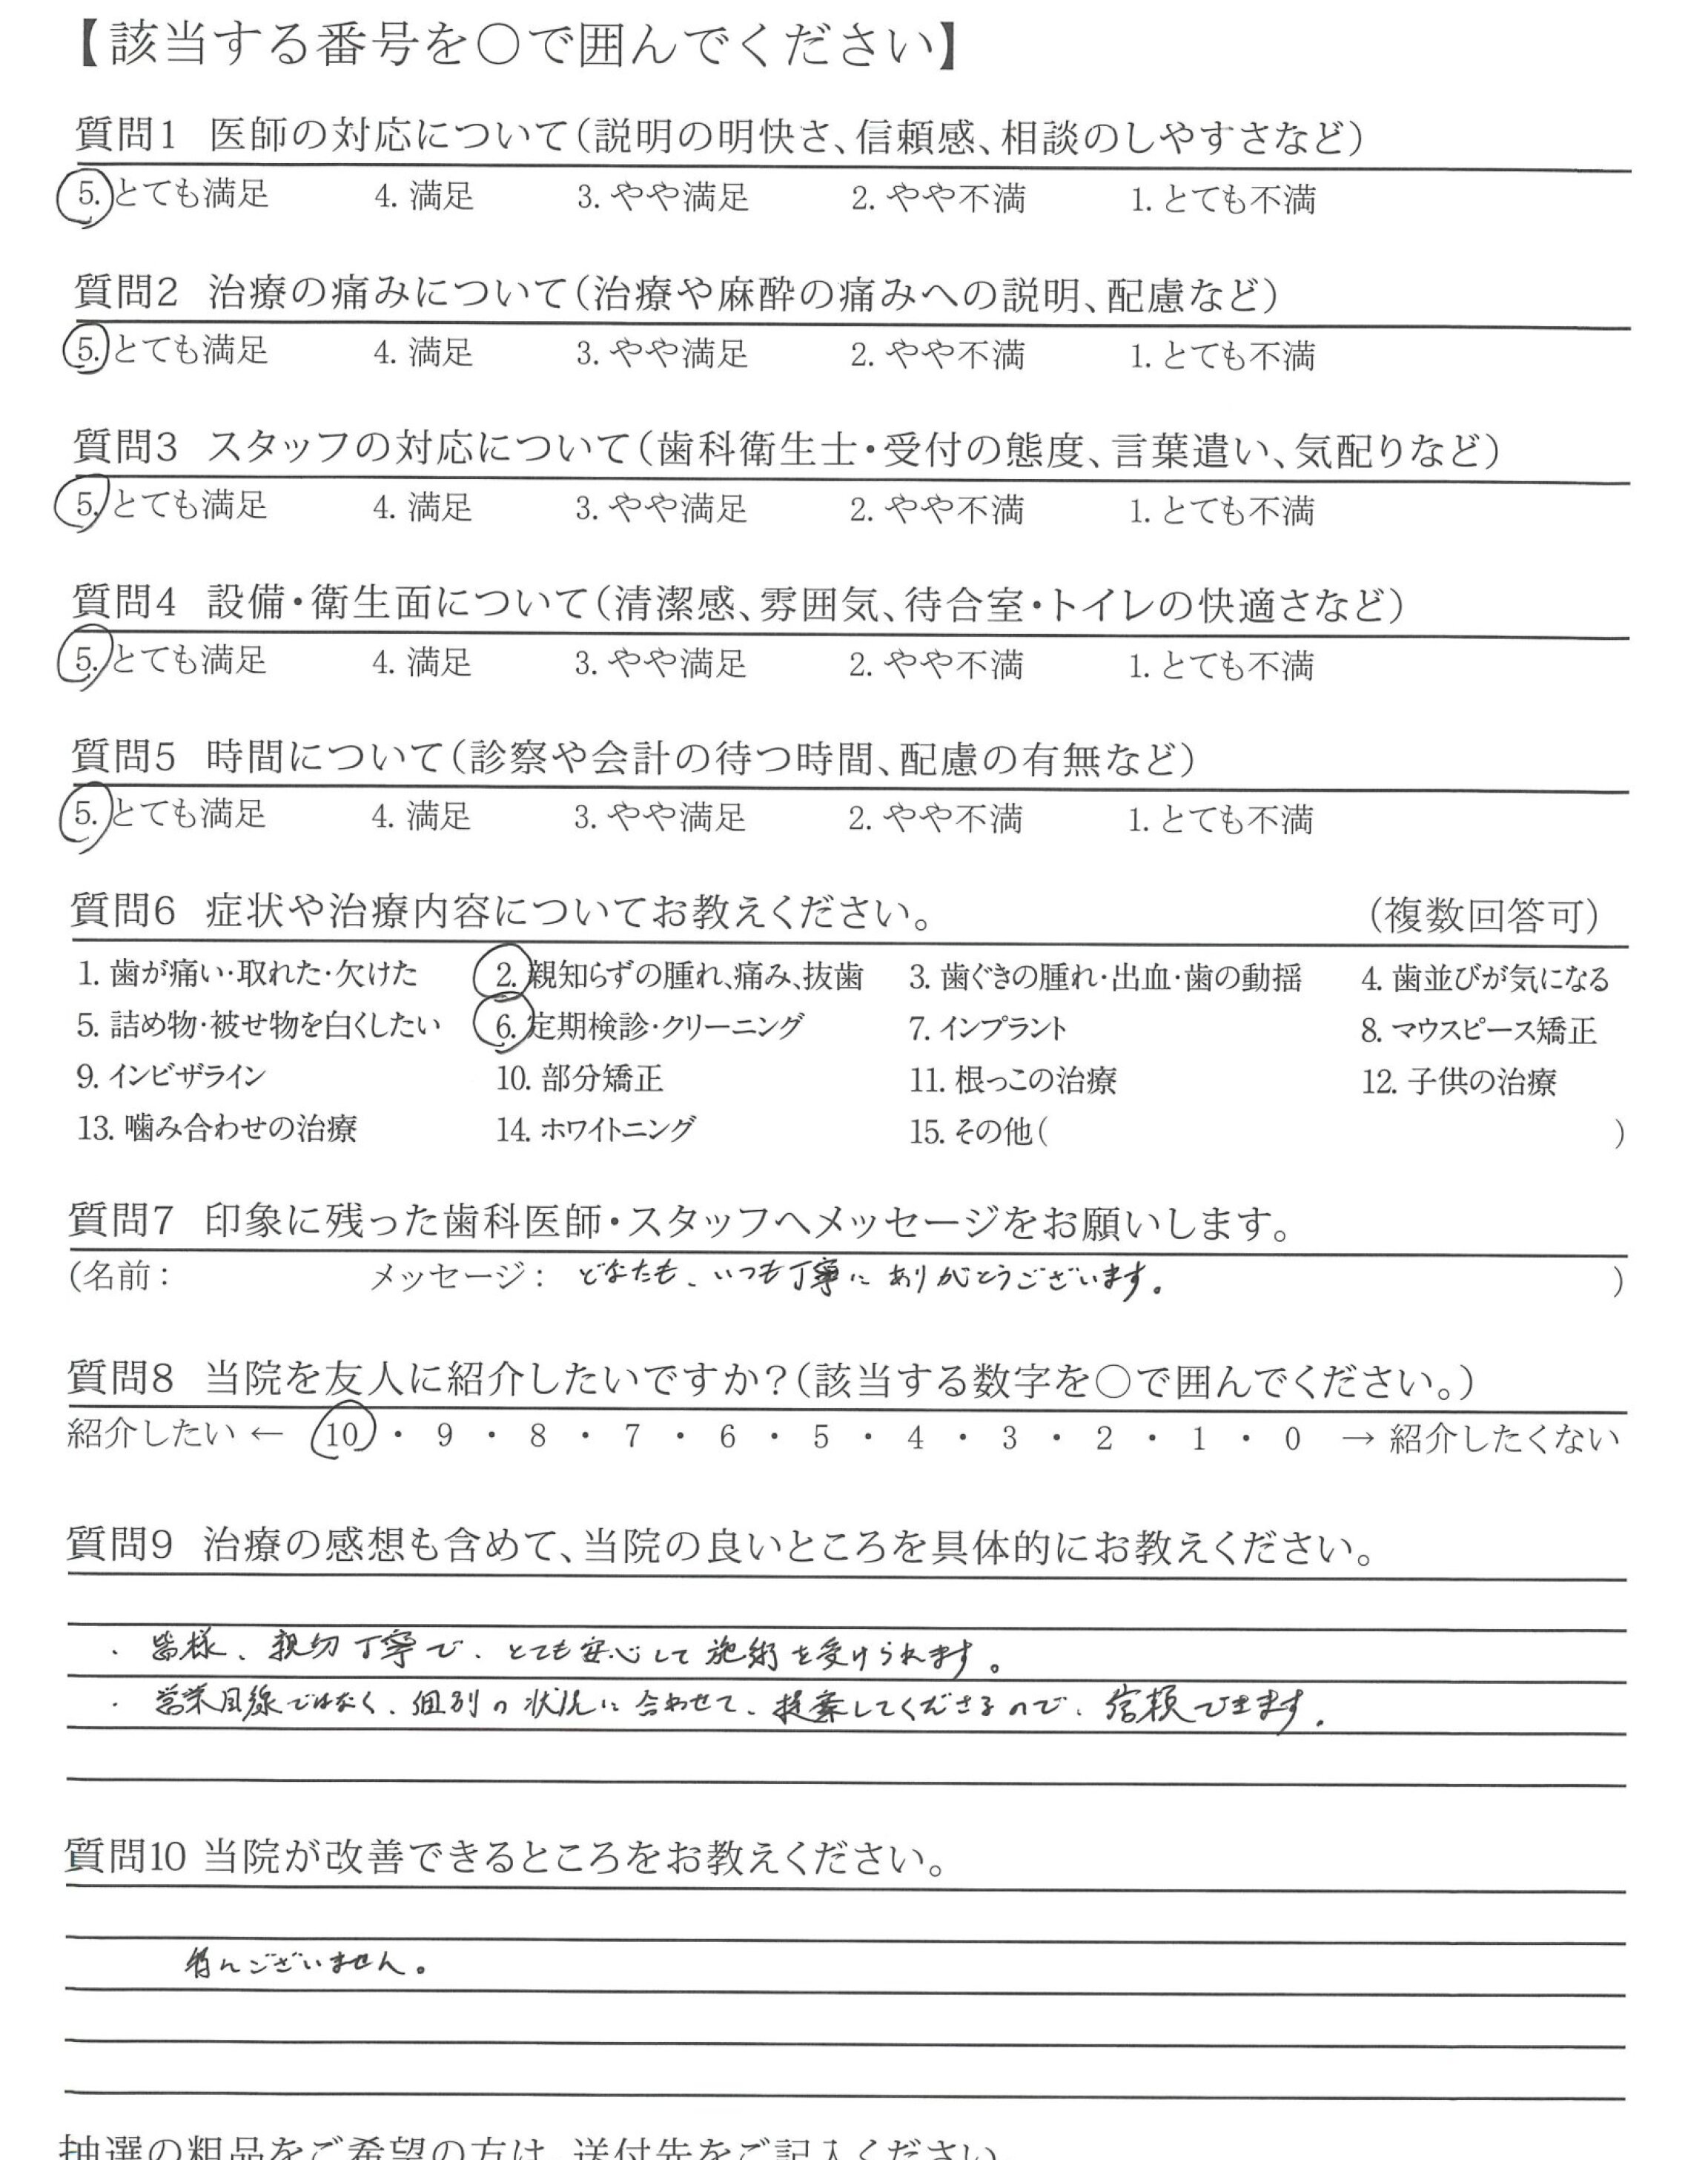 【該当する番号を○で囲んでください】
質問1 医師の対応について(説明の明快さ、信頼感、相談のしやすさなど)
5. とても満足 4. 満足 3. やや満足 2. やや不満 1. とても不満
質問2 治療の痛みについて(治療や麻酔の痛みへの説明、配慮など)
5. とても満足 4. 満足 3. やや満足 2. やや不満 1. とても不満
質問3 スタッフの対応について(歯科衛生士・受付の態度、言葉遣い、気配りなど)
5. とても満足 4. 満足 3. やや満足 2. やや不満 1. とても不満
質問4 設備・衛生面について(清潔感、雰囲気、待合室・トイレの快適さなど)
5. とても満足 4. 満足 3. やや満足 2. やや不満 1. とても不満
質問5 時間について(診察や会計の待つ時間、配慮の有無など)
5. とても満足 4. 満足 3. やや満足 2. やや不満 1. とても不満
質問6 症状や治療内容についてお教えください。 (複数回答可)
1. 歯が痛い・取れた・欠けた 2. 親知らずの腫れ、痛み、抜歯 3. 歯ぐきの腫れ・出血・歯の動揺 4. 歯並びが気になる
5. 詰め物・被せ物を白くしたい 6. 定期検診・クリーニング 7. インプラント 8. マウスピース矯正
9. インビザライン 10. 部分矯正 11. 根っこの治療 12. 子供の治療
13. 噛み合わせの治療 14. ホワイトニング 15. その他( )
質問7 印象に残った歯科医師・スタッフへメッセージをお願いします。
(名前: メッセージ: どなたも、いつも丁寧にありがとうございます。 )
質問8 当院を友人に紹介したいですか?(該当する数字を○で囲んでください。)
紹介したい ← 10 ・ 9 ・ 8 ・ 7 ・ 6 ・ 5 ・ 4 ・ 3 ・ 2 ・ 1 ・ 0 → 紹介したくない
質問9 治療の感想も含めて、当院の良いところを具体的にお教えください。
・ 皆様、親切丁寧で、とても安心して施術を受けられます。
・ 営業目線ではなく、個別の状況に合わせて、提案してくださるので、信頼できます。
質問10 当院が改善できるところをお教えください。
ございません。
抽選の粗品をご希望の方は、送付先をご記入ください